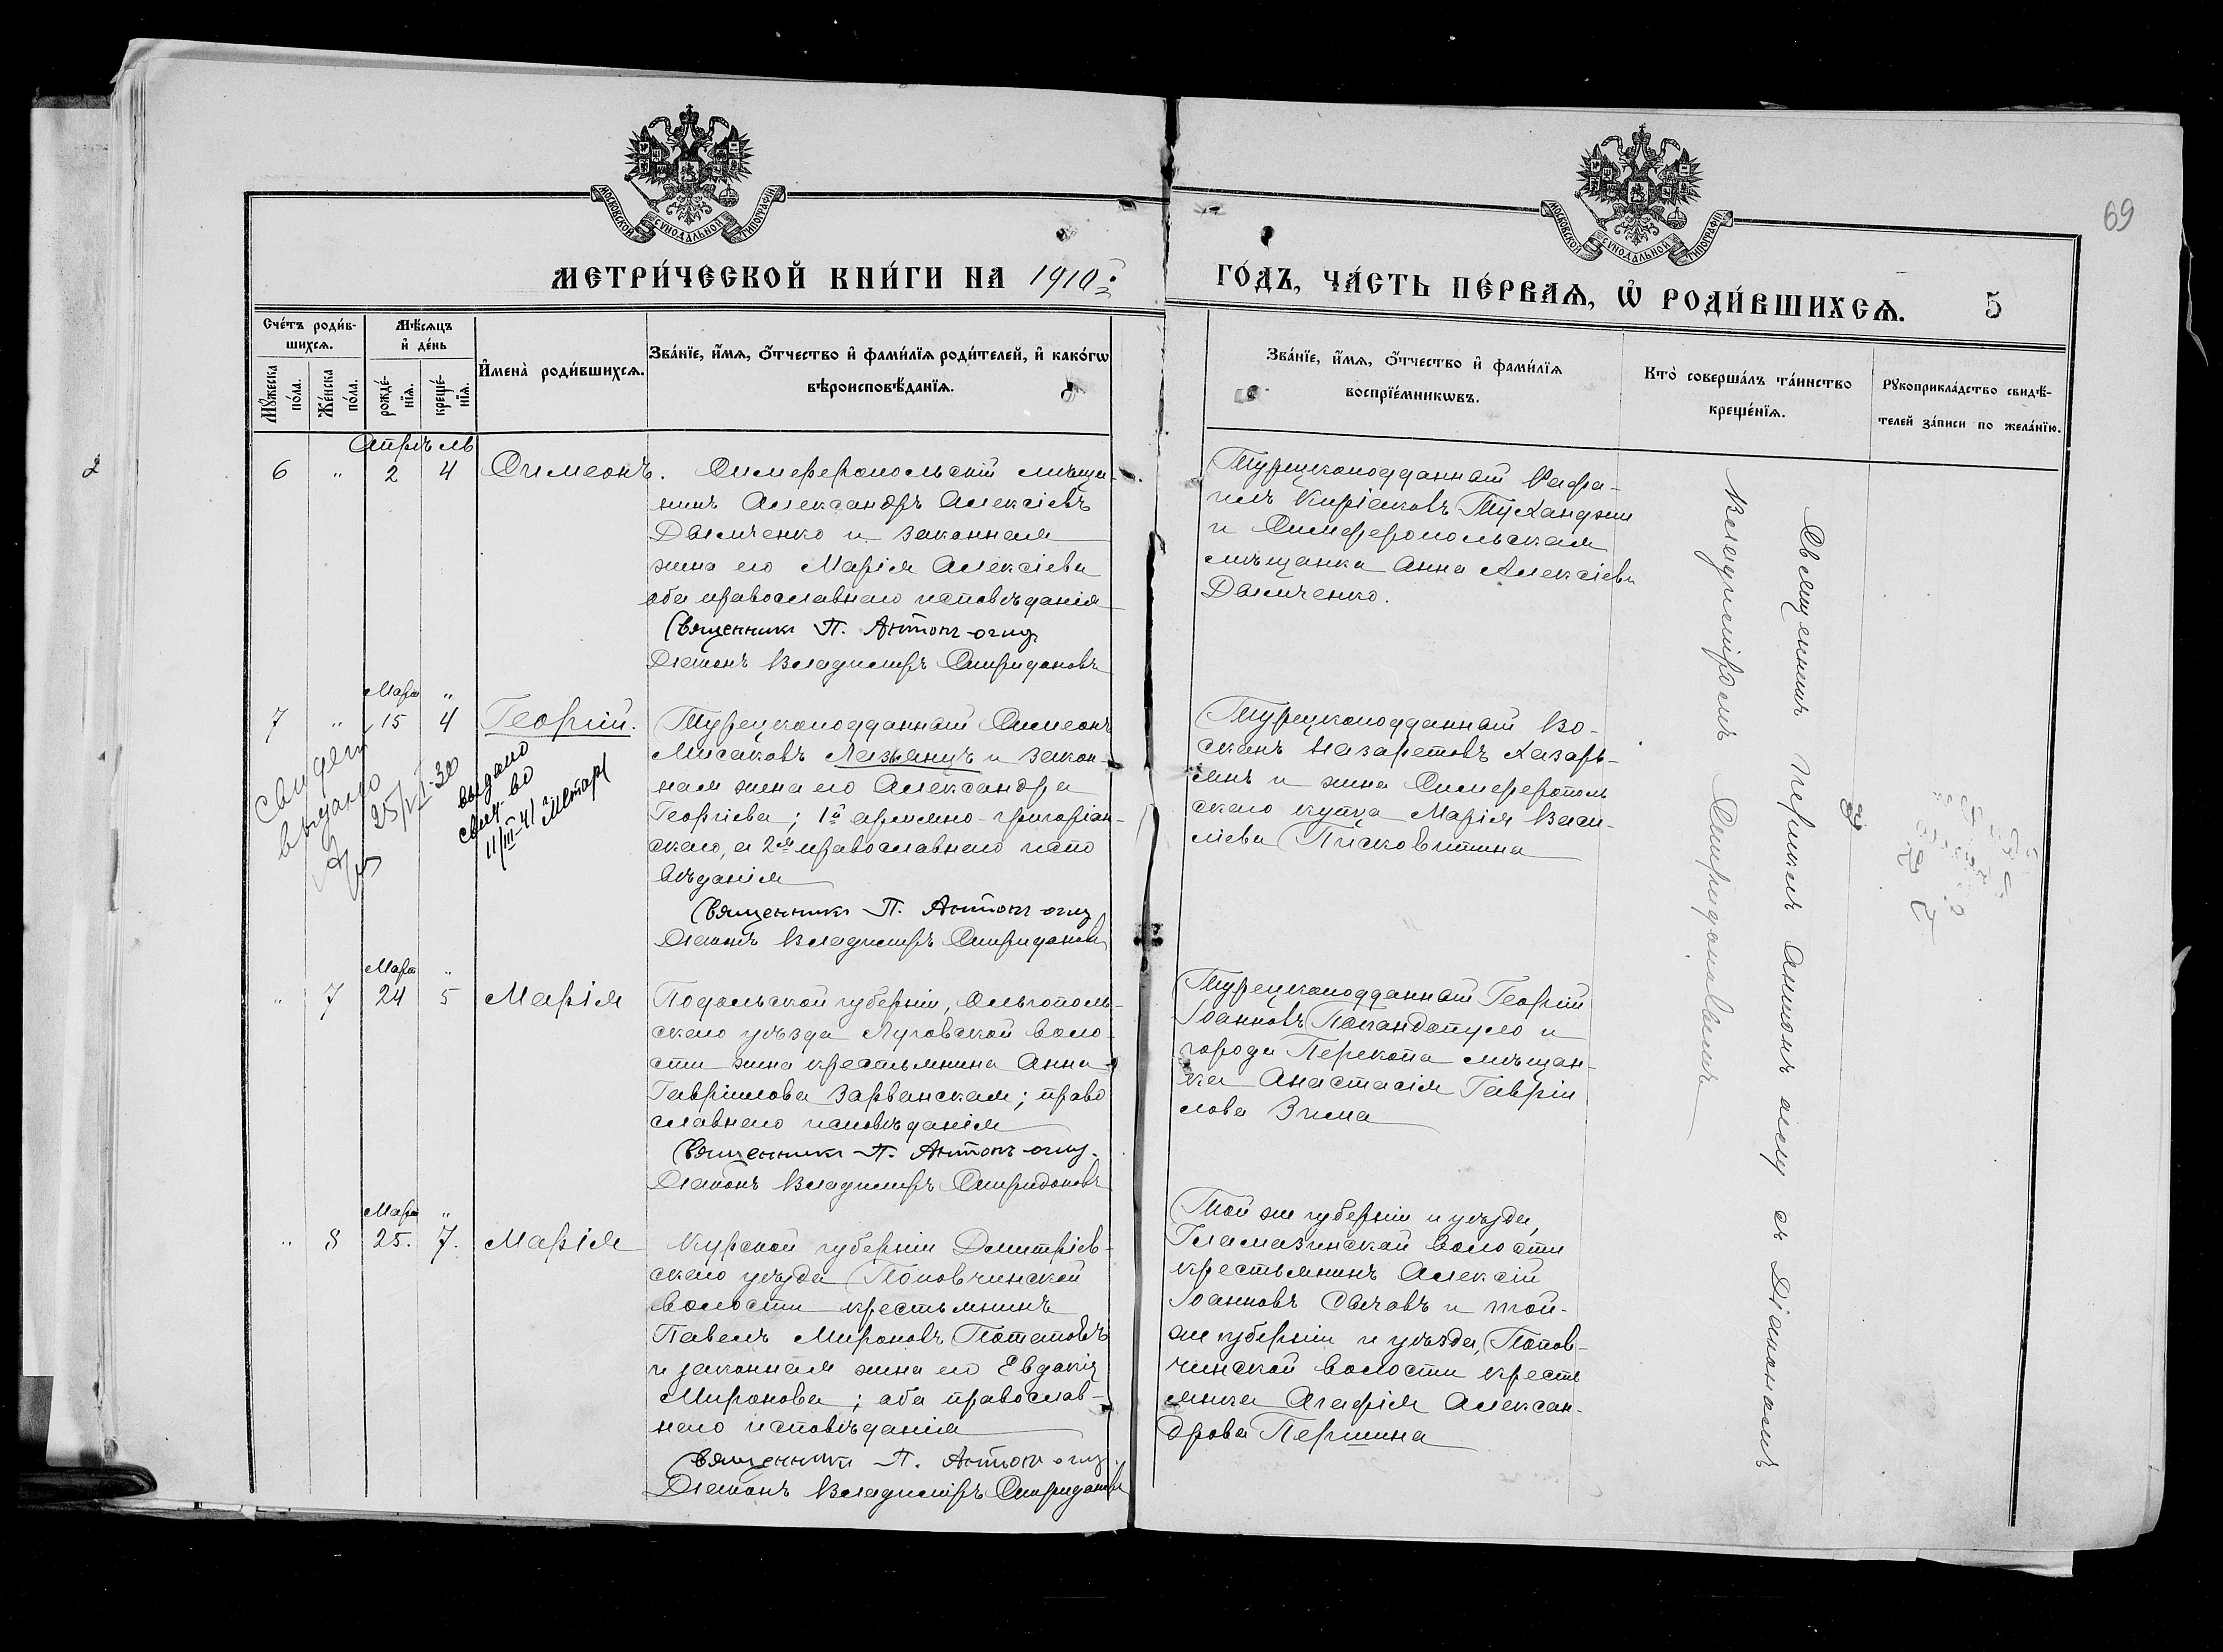 69
МОСКОВСКОЙ СѴНОДАЛЬНОЙ ТИПОГРАФІИ
МОСКОВСКОЙ СѴНОДАЛЬНОЙ ТИПОГРАФІИ
МЕТРИ́ЧЕСКОЙ КНИ́ГИ НА 1910 й
ГО́ДЪ, ЧА́СТЬ ПЕ́РВАѦ, Ѡ҆ РОДИ́ВШИХСѦ. 5
Сче́тъ роди́в-
шихсѧ.
Мѣ́сѧцъ
и҆ де́нь
Мꙋ́жеска
по́ла.
Же́нска
по́ла.
рожде́-
нїѧ.
креще́-
нїѧ.
И҆мена̀ роди́вшихсѧ.
Зва́нїе, и҆́мѧ, ѻ҆́тчество и҆ фами́лїѧ роди́телей, и҆ како́гѡ
вѣроисповѣ́данїѧ.
Зва́нїе, и҆́мѧ, ѻ҆́тчество и҆ фами́лїѧ
воспрїе́мникѡвъ.
Кто̀ соверша́лъ та́инство
креще́нїѧ.
Рꙋкоприкла́дство свидѣ́-
телей за́писи по жела́нїю.
Апрѣль
2
6 " 2 4 Симеонъ. Симферопольскій мѣща-
нинъ Александръ Алексіевъ
Дьяченко и законная
жена его Марія Алексіева
оба православнаго исповѣданія
Священникъ П. Антонъ-оглу
Діаконъ Владиміръ Спиридоновъ
Турецкоподданный Рафа-
илъ Киріаковъ Туханджи
и Симферопольская
мѣщанка Анна Алексіева
Дьяченко.
Март "
7 " 15 4 Георгій. Турецкоподданный Симеонъ
Мисаковъ Лазьянцъ и закон-
ная жена его Александра
Георгіева; 1й армяно-григоріан-
скаго, а 2ая православнаго испо
вѣданія
Священникъ П. Антонъ-оглу
Діаконъ Владиміръ Спиридоновъ
выдано
25/VI-30
выдано
свид-во
11/III-41 г
Турецкоподданный Во-
сканъ Назаретовъ Хазарь-
янъ и жена Симферополь
скаго купца Марія Васи-
ліева Писковитина
Март "
" 7 24 5 Марія Подольской губерніи, Ольгополь-
скаго уѣзда Луговской воло-
сти жена крестьянина Анна
Гавріилова Зарванская; право
славнаго исповѣданія
Священникъ П. Антонъ-оглу.
Діаконъ Владиміръ Спиридоновъ
Турецкоподданный Георгій
Іоанновъ Папандопуло и
города Перекопа мѣщан-
ка Анастасія Гавріи
лова Зима
Март "
" 8 25. 7. Марія Курской губерніи Дмитріев-
скаго уѣзда Поповчинской
волости крестьянинъ
Павелъ Мироновъ Потаповъ
и законная жена его Евдокія
Миронова; оба православ-
наго исповѣданія
Священникъ П. Антонъ-оглу.
Діаконъ Владиміръ Спиридоновъ
Той же губерніи и уѣзда,
волости
крестьянинъ Алексій
Іоанновъ Сычовъ и той-
же губерніи и уѣзда, Попов-
чинской волости кресть
янка Агафія Алексан-
дрова Першина
Священникъ Периклъ Антонъ оглу съ Діакономъ
Владиміромъ Спиридоновымъ